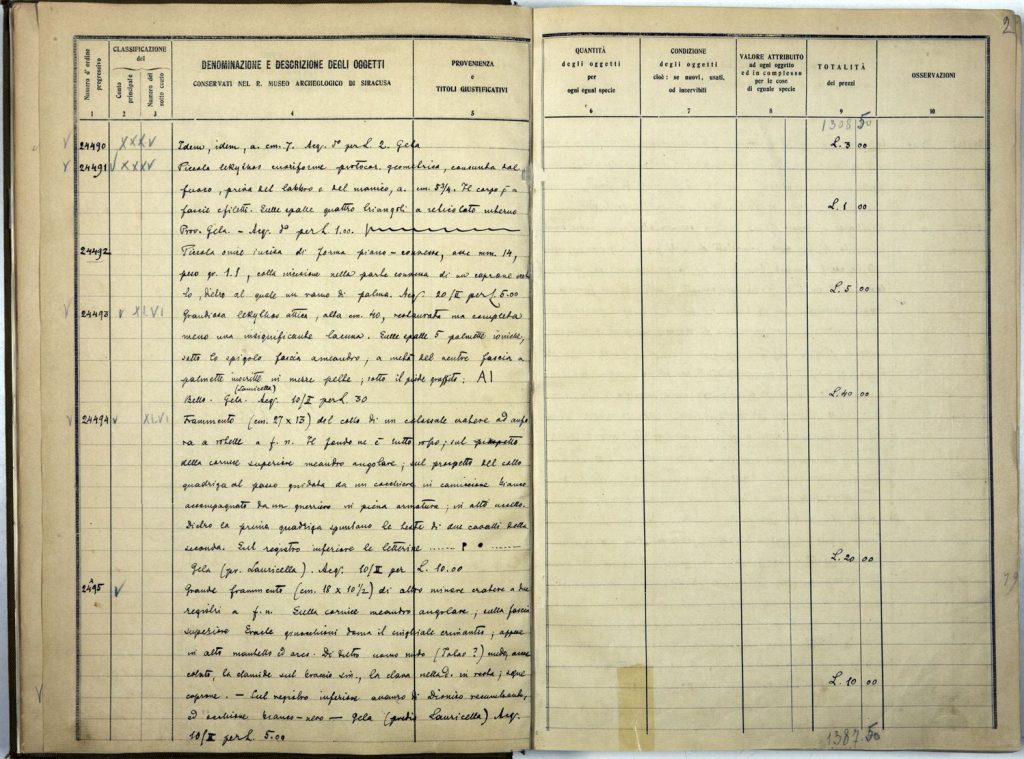 2
Numero d'ordine progressivo
CLASSIFICAZIONE
del
Conto principale
Numero del sotto conto
DENOMINAZIONE E DESCRIZIONE DEGLI OGGETTI
CONSERVATI NEL R. MUSEO ARCHEOLOGICO DI SIRACUSA
PROVENIENZA
e
TITOLI GIUSTIFICATIVI
QUANTITÀ
degli oggetti
per
ogni egual specie
CONDIZIONE
degli oggetti
cioè: se nuovi, usati,
od inservibili
VALORE ATTRIBUITO
ad ogni oggetto
ed in complesso
per le cose
di eguale specie
TOTALITÀ
dei prezzi
OSSERVAZIONI
1 2 3 4 5 6 7 8 9 10
1308 50
24490 XXXV Idem, idem, a. cm. 7. Acq. d° per L. 2. Gela L. 3 00
24491 XXXV Piccola lekythos cuoriforme protocor. geometrica, consunta dal
fuoco, priva del labbro e del manico, a. cm. 5 3/4. Il corpo è a
fascie e filetti. Sulle spalle quattro triangoli a reticolato interno L. 1 00
Prov. Gela. - Acq. d° per L. 1.00.
24492 Piccola incisa di forma piano-convessa, asse mm. 14,
peso gr. 1.1, colla incisione nella parte convessa di un caprone
lo, dietro al quale un ramo di palma. Acq. 20/II per L. 5.00 L. 5 00
24493 v XLVI Grandiosa lekythos attica, alta cm. 40, restaurata ma completa
meno una insignificante lacuna. Sulle spalle 5 palmette ioniche,
sotto lo spigolo fascia a meandro, a metà del ventre fascia a
palmette inscritte in mezze pelte; sotto il piede graffito: AI
(Lauricella)
Bello. Gela. Acq. 10/II per L. 30 L. 40 00
24494 v XLVI Frammento (cm. 27 x 13) del collo di un colossale cratere ad anfo
ra a rotelle a f. n. Il fondo ne è tutto roso; sul
della cornice superiore meandro angolare; sul prospetto del collo
quadriga al passo guidata da un cocchiere in camicione bianco
accompagnato da un guerriero in piena armatura; in alto uccello.
Dietro la prima quadriga spuntano le teste di due cavalli della
seconda. Sul registro inferiore le letterine L. 20 00
Gela (pr. Lauricella). Acq. 10/II per L. 10.00
24495 v Grande frammento (cm. 18 x 10 1/2) di altro minore cratere a due
registri a f. n. Sulla cornice meandro angolare; sulla fascia
superiore Eracle ginocchioni doma il cinghiale erimantio; appese
in alto mantello ed arco. Di dietro uomo nudo (Iolao?)
la clamide sul braccio sin., la clava nella d. L. 10 00
caprone. - Sul registro inferiore avanzo di Dioniso recumbente,
bianco-nero - Gela (predio Lauricella) Acq.
10/II per L. 5.00
1387.50